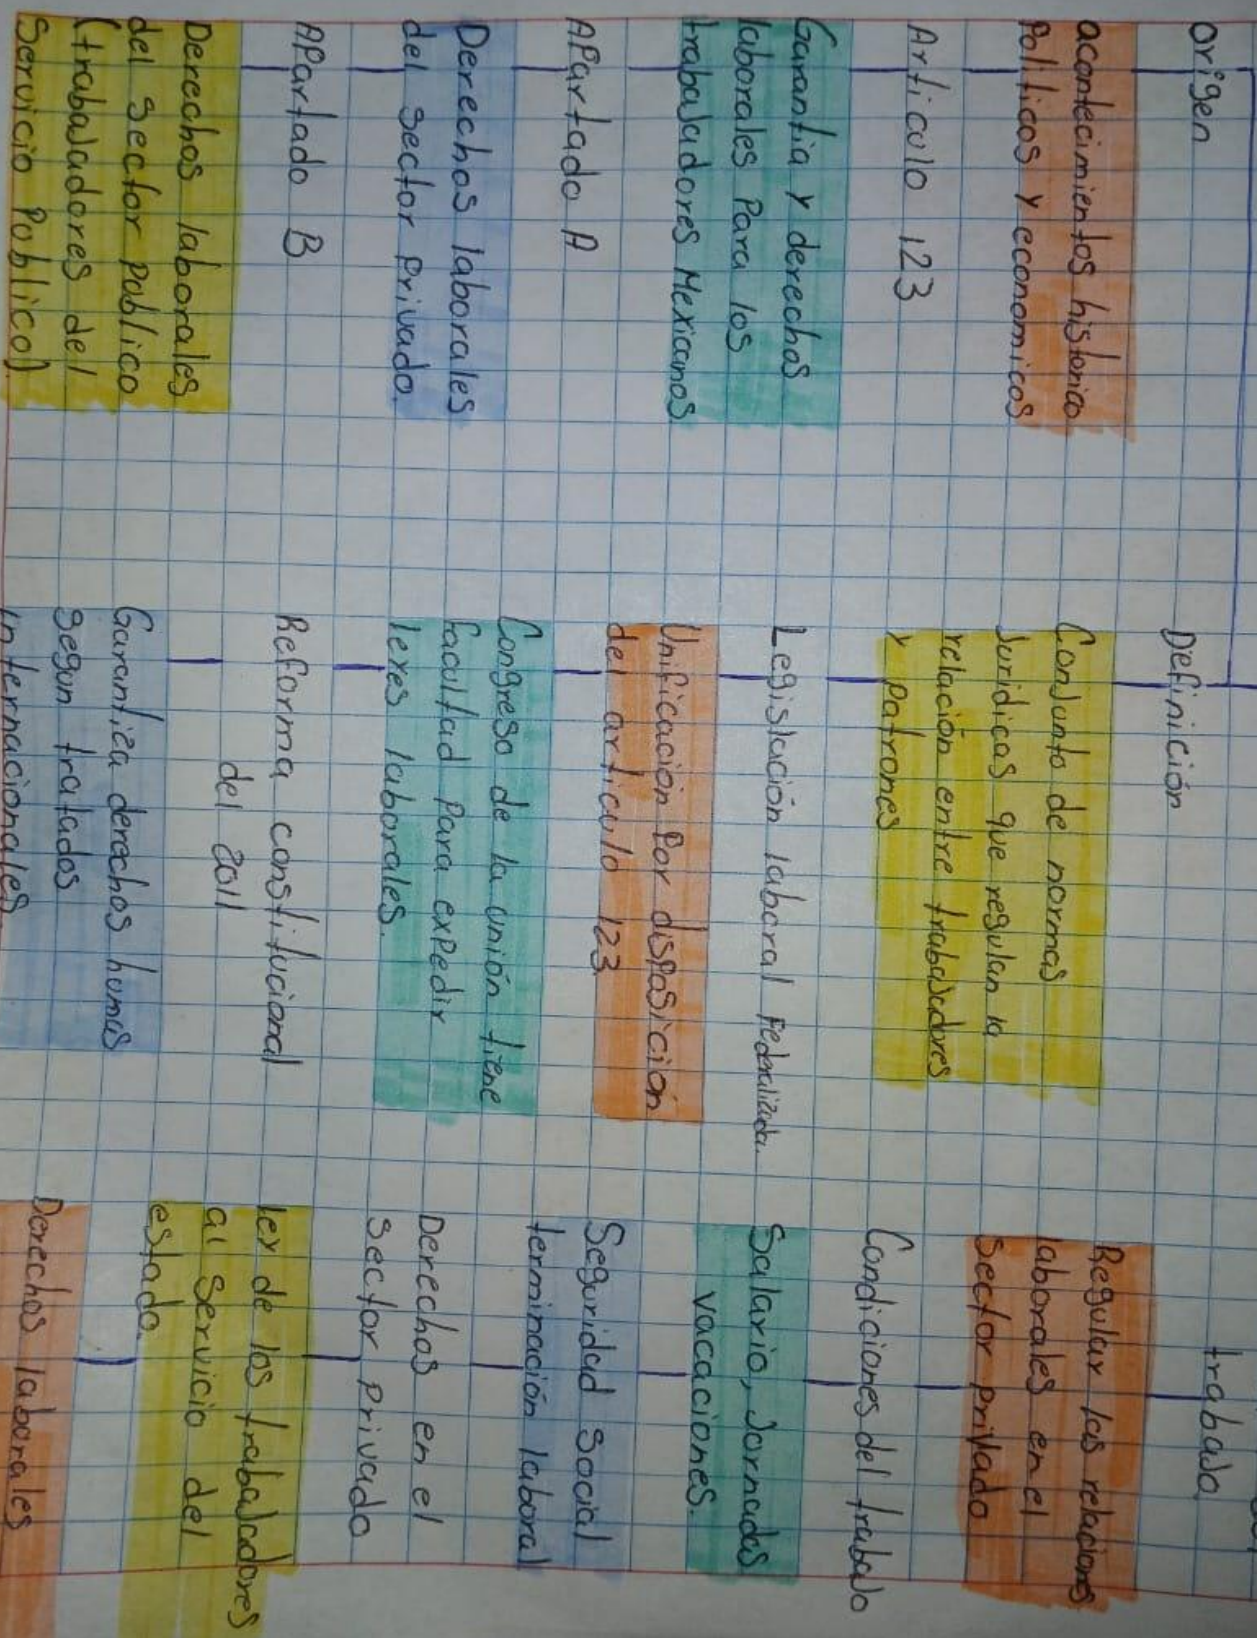 Origen
acontecimientos historico
Politicos y economicos
Articulo 123
Garantia y derechos
laborales Para los
trabajadores Mexicanos
APartado A
Derechos laborales
del sector Privado.
APartado B
Derechos laborales
del sector publico
(trabajadores del
Servicio Publico)
Definición
Conjunto de normas
Juridicas que regulan la
relación entre trabajadores
y Patrones
Legislación laboral Federalizada.
Unificación Por disposición
del articulo 123
Congreso de la unión tiene
facultad Para expedir
leyes laborales.
Reforma constitucional
del 2011
Garantiza derechos humas
segun tratados
internacionales
trabajo
Regular las relaciones
laborales en el
Sector privado
Condiciones del trabajo
Salario, Jornadas
vacaciones.
Seguridad Social
terminación laboral
Derechos en el
sector Privado
ley de los trabajadores
al servicio del
estado.
Derechos laborales